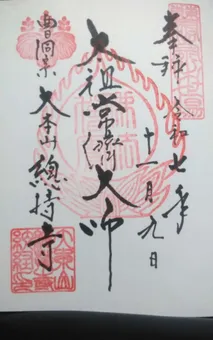 奉拝 令和七年
十一月九日
太祖常済大師
曹洞宗
大本山總持寺